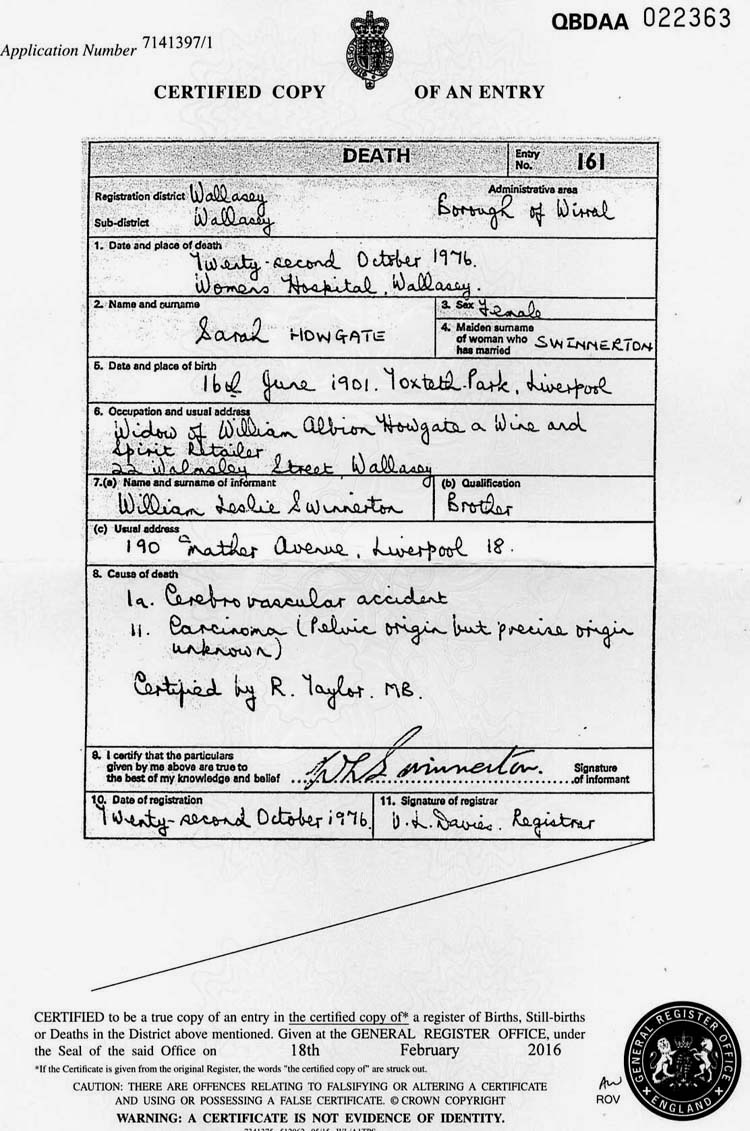 QBDAA 022363
Application Number 7141397/1
CERTIFIED COPY OF AN ENTRY
DEATH
Entry No. 161
Registration district Wallasey
Sub-district Wallasey
Administrative area
Borough of Wirral
1. Date and place of death
Twenty-second October 1976.
Womens Hospital, Wallasey.
2. Name and surname
Sarah HOWGATE
3. Sex Female
4. Maiden surname
of woman who
has married SWINNERTON
5. Date and place of birth
16th June 1901. Toxteth Park, Liverpool
6. Occupation and usual address
Widow of William Albion Howgate a Wine and
Spirit Retailer
22 Walmsley Street, Wallasey
7.(a) Name and surname of informant
William Leslie Swinnerton
(b) Qualification
Brother
(c) Usual address
190 Mather Avenue, Liverpool 18.
8. Cause of death
1a. Cerebro vascular accident
11. Carcinoma (Pelvic origin but precise origin
unknown)
Certified by R. Taylor. MB.
9. I certify that the particulars
given by me above are true to
the best of my knowledge and belief
W L Swinnerton.
Signature
of informant
10. Date of registration
Twenty-second October 1976.
11. Signature of registrar
V. L. Davies. Registrar
CERTIFIED to be a true copy of an entry in the certified copy of* a register of Births, Still-births
or Deaths in the District above mentioned. Given at the GENERAL REGISTER OFFICE, under
the Seal of the said Office on 18th February 2016
*If the Certificate is given from the original Register, the words "the certified copy of" are struck out.
CAUTION: THERE ARE OFFENCES RELATING TO FALSIFYING OR ALTERING A CERTIFICATE
AND USING OR POSSESSING A FALSE CERTIFICATE. © CROWN COPYRIGHT
WARNING: A CERTIFICATE IS NOT EVIDENCE OF IDENTITY.
GENERAL REGISTER OFFICE
ENGLAND
ROV